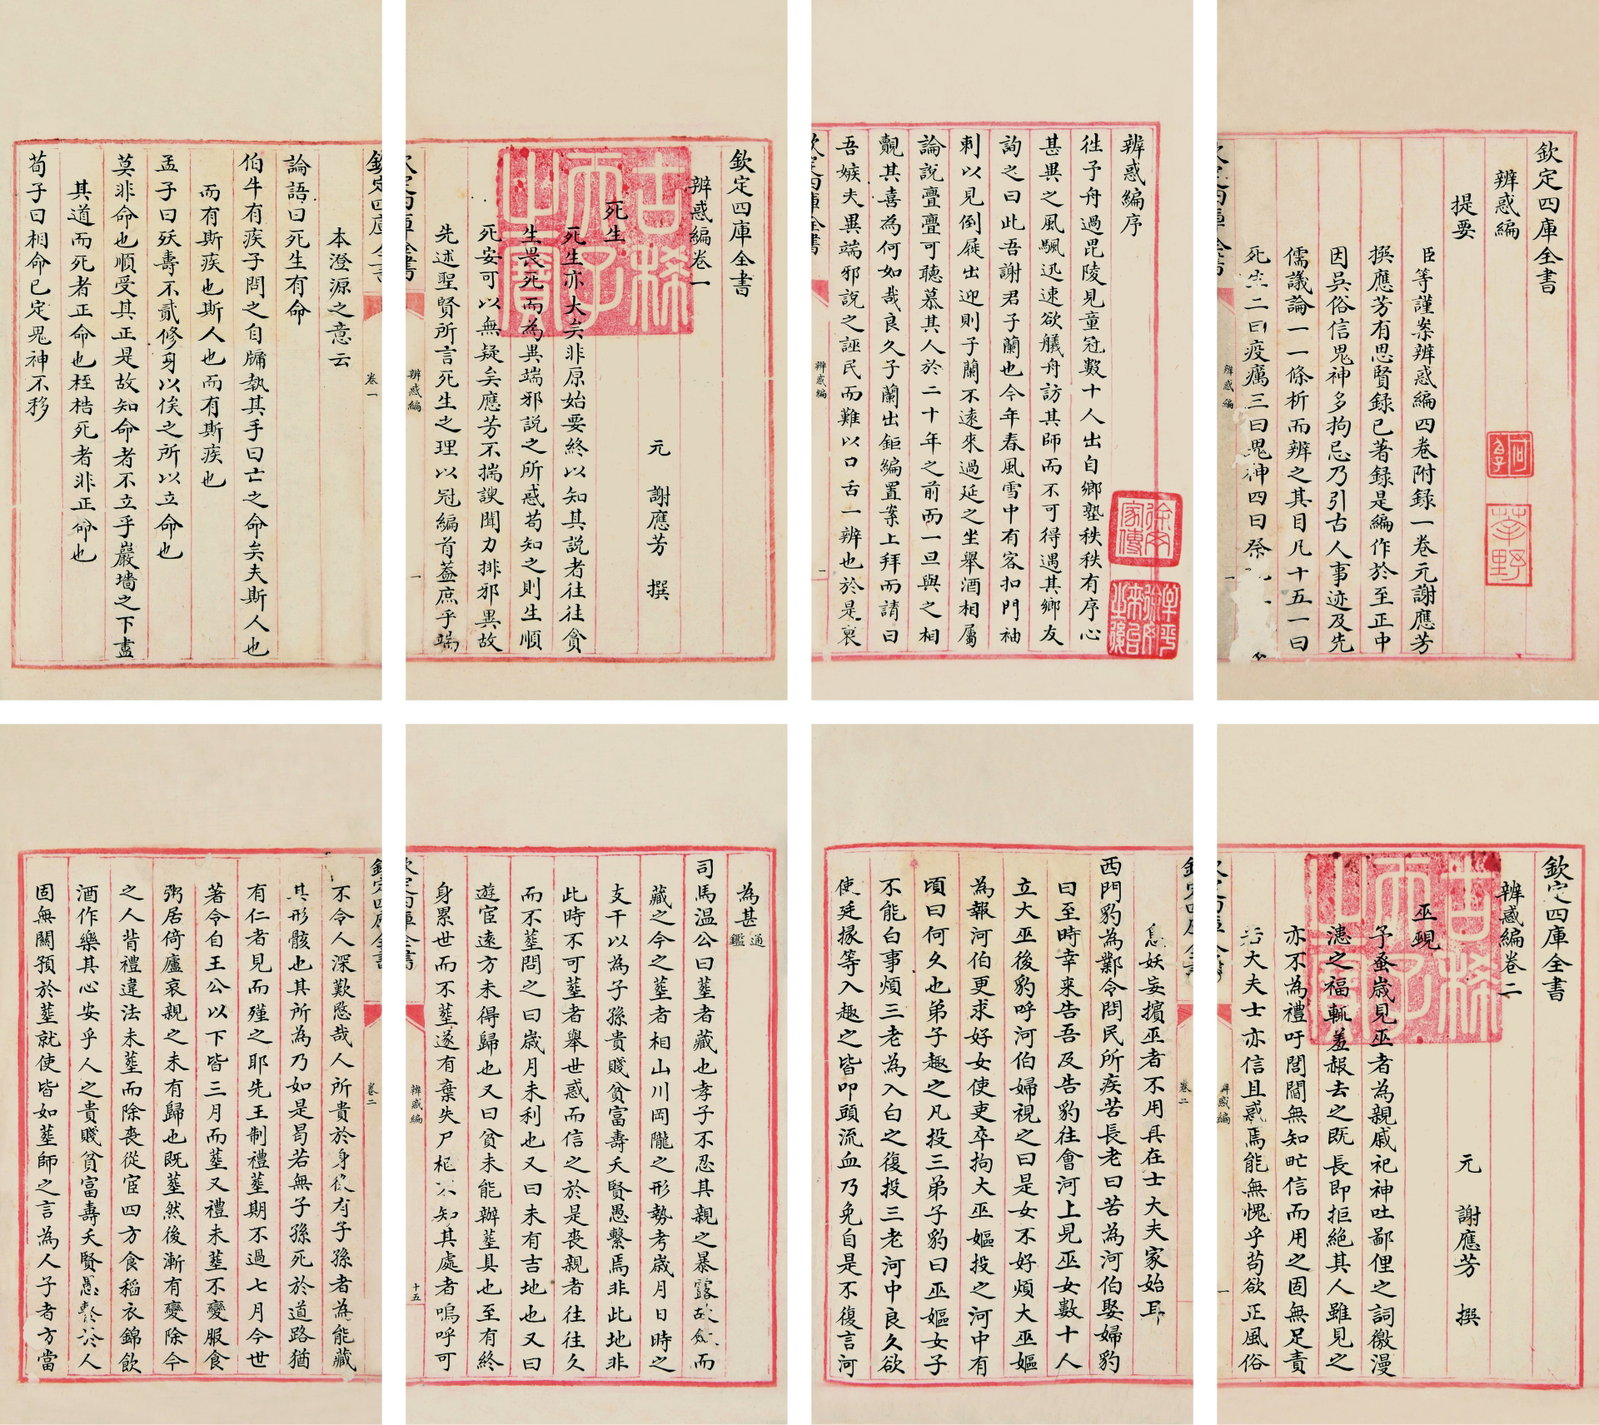 欽定四庫全書
辨惑編
提要
臣等謹案辨惑編四卷附録一卷元謝應芳
撰應芳有思賢録已著録是編作於至正中
因吳俗信鬼神多拘忌乃引古人事迹及先
儒議論一一條析而辨之其目凡十五一曰
死生二曰疫癘三曰鬼神四曰祭
莘野
辨惑編
一
辨惑編序
徃予舟過毘陵見童冠數十人出自鄉塾秩秩有序心
甚異之風颿迅速欲艤舟訪其師而不可得遇其鄉友
詢之曰此吾謝君子蘭也今年春風雪中有客扣門袖
刺以見倒屣出迎則子蘭不遠來過延之坐舉酒相屬
論說亹亹可聽慕其人於二十年之前而一旦與之相
覿其喜為何如哉良久子蘭出鉅編置案上拜而請曰
吾嫉夫異端邪說之誣民而難以口舌一辨也於是裒
辨惑編
一
欽定四庫全書
辨惑編卷一
元 謝應芳 撰
死生
死生亦大矣非原始要終以知其說者往往貪
生畏死而為異端邪說之所惑苟知之則生順
死安可以無疑矣應芳不揣謏聞力排邪異故
先述聖賢所言死生之理以冠編首蓋庶乎端
古稀天子之寶
辨惑編
一
欽定四庫全書
卷一
本澄源之意云
論語曰死生有命
伯牛有疾子問之自牖執其手曰亡之命矣夫斯人也
而有斯疾也斯人也而有斯疾也
孟子曰殀壽不貳修身以俟之所以立命也
莫非命也順受其正是故知命者不立乎巖墻之下盡
其道而死者正命也桎梏死者非正命也
荀子曰相命已定鬼神不移
欽定四庫全書
辨惑編卷二
元 謝應芳 撰
巫覡
予蚤歲見巫者為親戚祀神吐鄙俚之詞徼漫
漶之福輒羞赧去之既長即拒絕其人雖見之
亦不為禮吁閭閻無知氓信而用之固無足責
若大夫士亦信且惑焉能無愧乎苟欲正風俗
古稀天子之寶
辨惑編
一
欽定四庫全書
卷二
息妖妄擯巫者不用具在士大夫家始耳
西門豹為鄴令問民所疾苦長老曰苦為河伯娶婦豹
曰至時幸来告吾及告豹往會河上見巫女數十人
立大巫後豹呼河伯婦視之曰是女不好煩大巫嫗
為報河伯更求好女使吏卒拘大巫嫗投之河中有
頃曰何久也弟子趣之凡投三弟子豹曰巫嫗女子
不能白事煩三老為入白之復投三老河中良久欲
使廷掾等入趣之皆叩頭流血乃免自是不復言河
為甚
通鑑
司馬温公曰塟者藏也孝子不忍其親之暴露故斂而
藏之今之塟者相山川岡隴之形勢考歲月日時之
支干以為子孫貴賤貧富壽夭賢愚繫焉非此地非
此時不可塟者舉世惑而信之於是喪親者往往久
而不塟問之曰歲月未利也又曰未有吉地也又曰
遊宦遠方未得歸也又曰貧未能辦塟具也至有終
身累世而不塟遂有棄失尸柩不知其處者嗚呼可
辨惑編
十五
欽定四庫全書
卷二
不令人深歎愍哉人所貴於身後有子孫者為能藏
其形骸也其所為乃如是曷若無子孫死於道路猶
有仁者見而殣之耶先王制禮塟期不過七月今世
著令自王公以下皆三月而塟又禮未塟不變服食
粥居倚廬哀親之未有歸也既塟然後漸有變除今
之人背禮違法未塟而除喪從宦四方食稻衣錦飲
酒作樂其心安乎人之貴賤貧富壽夭賢愚繫於人
固無關預於塟就使皆如塟師之言為人子者方當